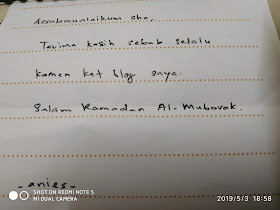 Assalamualaikum sha,
Terima kasih sebab selalu
komen kat blog saya.
Salam Ramadan Al-Mubarak.
-anies-
SHOT ON REDMI NOTE 5
MI DUAL CAMERA
2019/5/3 18:58